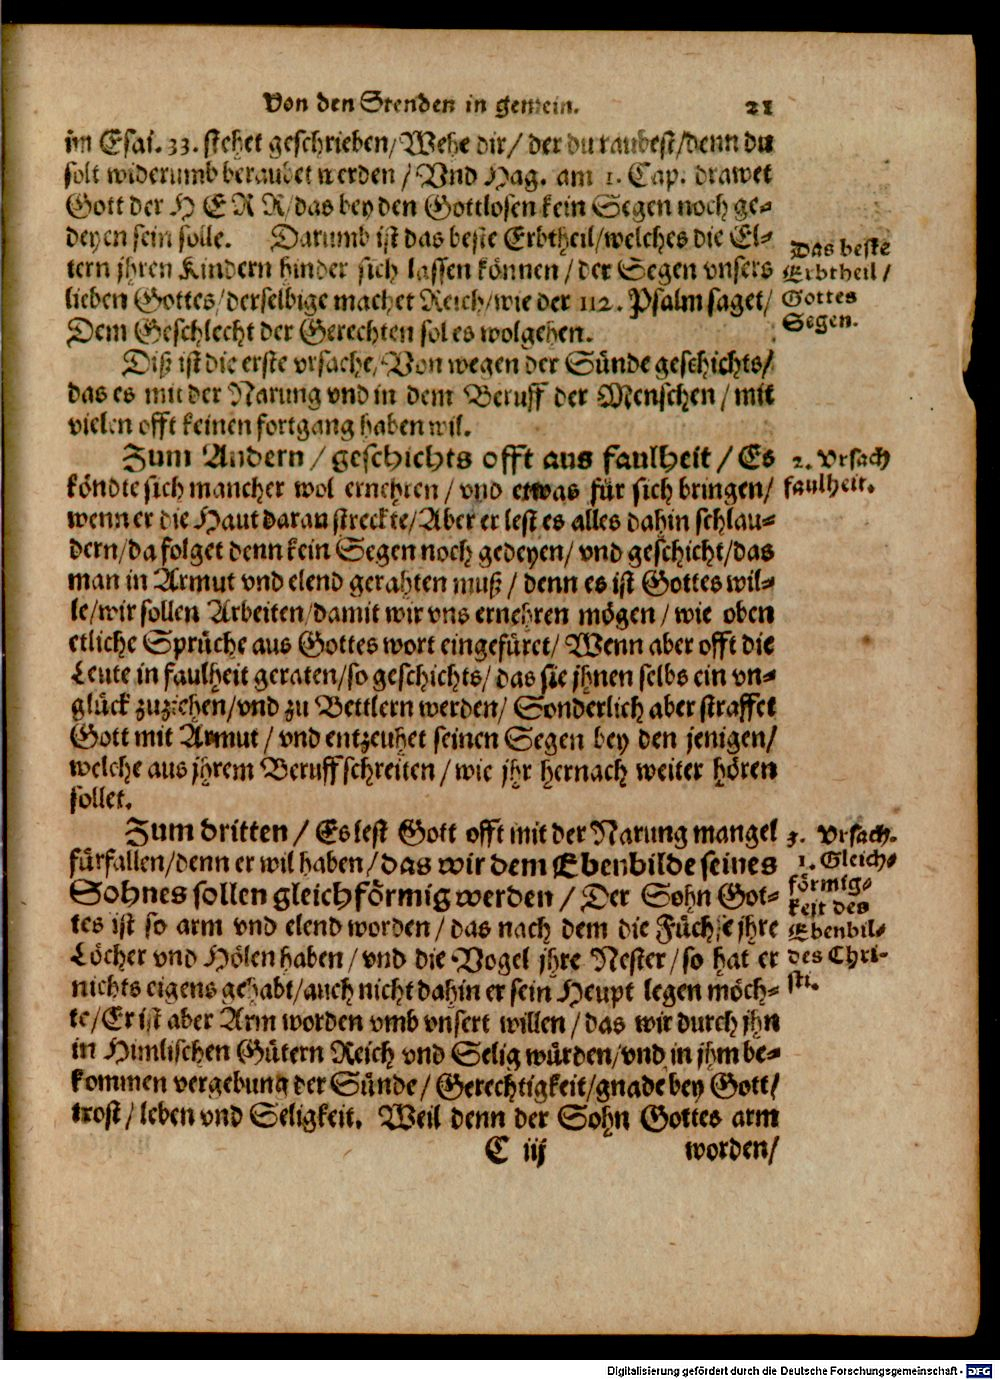 Von den Stenden in gemein. 21
im Esai. 33. stehet geschrieben/ Wehe dir/ der du raubest/ denn du
solt widerumb beraubet werden / Vnd Hag. am 1. Cap. drawet
Gott der H E R R/ das bey den Gottlosen kein Segen noch ge-
deyen sein solle. Darumb ist das beste Erbtheil/ welches die El-
tern jhren Kindern hinder sich lassen können / der Segen vnsers
lieben Gottes/ derselbige machet Reich/ wie der 112. Psalm saget/
Dem Geschlecht der Gerechten sol es wolgehen.
Das beste
Erbtheil /
Gottes
Segen.
Diß ist die erste vrsache/ Von wegen der Sünde geschichts/
das es mit der Narung vnd in dem Beruff der Menschen / mit
vielen offt keinen fortgang haben wil.
Zum Andern / geschichts offt aus faulheit / Es
köndte sich mancher wol ernehren / vnd etwas für sich bringen/
wenn er die Haut daran streckte/ Aber er lest es alles dahin schlau-
dern/ da folget denn kein Segen noch gedeyen/ vnd geschicht/ das
man in Armut vnd elend gerahten muß / denn es ist Gottes wil-
le/ wir sollen Arbeiten/ damit wir vns ernehren mögen / wie oben
etliche Sprüche aus Gottes wort eingefüret/ Wenn aber offt die
Leute in faulheit geraten/ so geschichts/ das sie jhnen selbs ein vn-
glück zuziehen/ vnd zu Bettlern werden/ Sonderlich aber straffet
Gott mit Armut / vnd entzeuhet seinen Segen bey den jenigen/
welche aus jhrem Beruff schreiten / wie jhr hernach weiter hören
sollet.
2. Vrsach
faulheit.
Zum dritten / Es lest Gott offt mit der Narung mangel
fürfallen/ denn er wil haben / das wir dem Ebenbilde seines
Sohnes sollen gleichförmig werden / Der Sohn Got-
tes ist so arm vnd elend worden / das nach dem die Füchse jhre
Löcher vnd Hölen haben / vnd die Vogel jhre Nester / so hat er
nichts eigens gehabt/ auch nicht dahin er sein Heupt legen möch-
te/ Er ist aber Arm worden vmb vnsert willen / das wir durch jhn
in Himlischen Gütern Reich vnd Selig würden/ vnd in jhm be-
kommen vergebung der Sünde / Gerechtigkeit/ gnade bey Gott/
trost / leben vnd Seligkeit. Weil denn der Sohn Gottes arm
3. Vrsach.
1. Gleich-
förmig-
keit des
Ebenbil-
des Chri-
sti.
C iij worden/
Digitalisierung gefördert durch die Deutsche Forschungsgemeinschaft - DFG